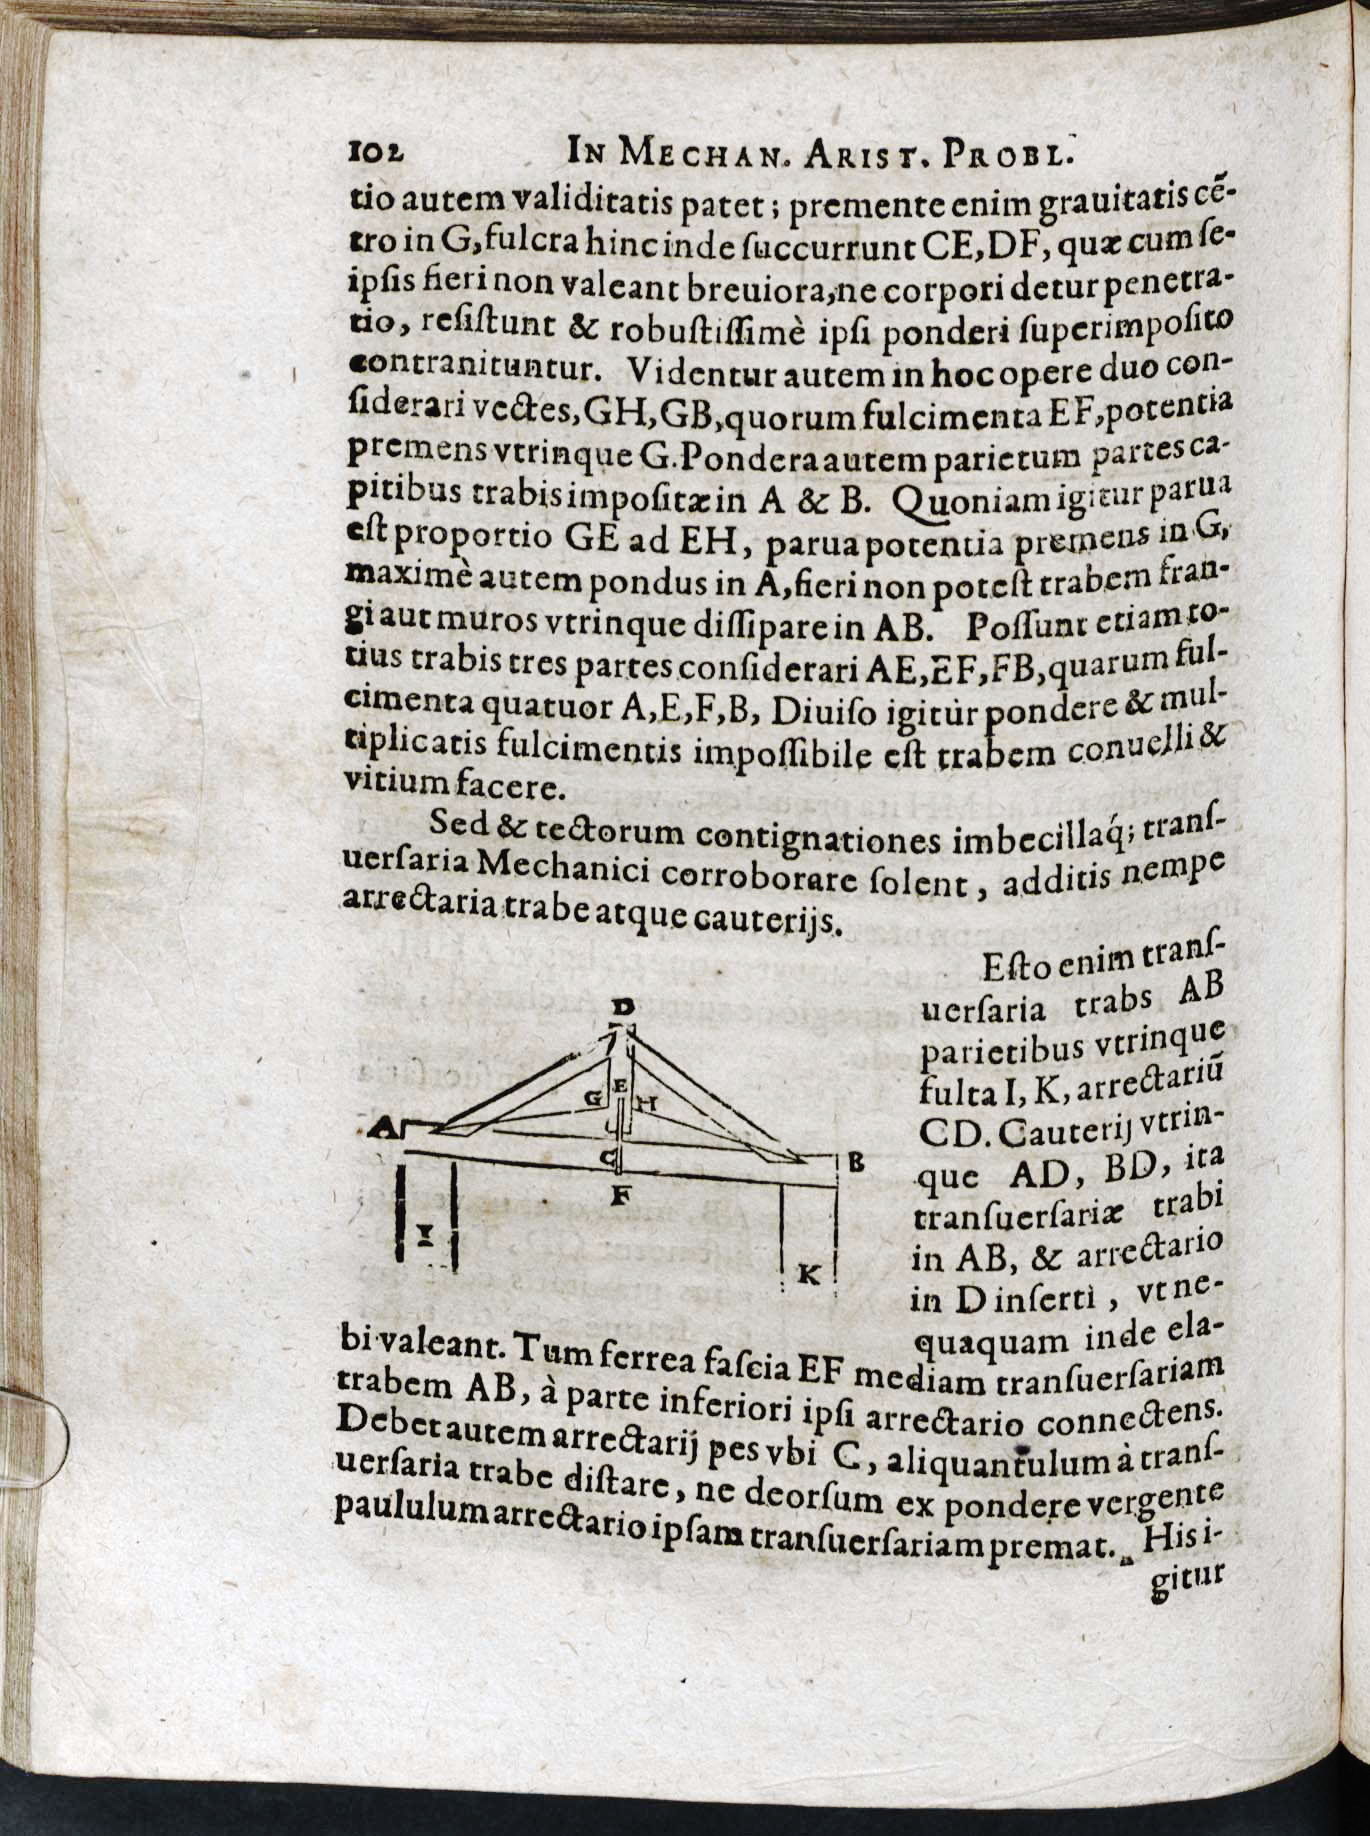 102 IN MECHAN. ARIST. PROBL.
tio autem validitatis patet; premente enim grauitatis cẽ-
tro in G, fulcra hinc inde ſuccurrunt CE, DF, quæ cum ſe-
ipſis fieri non valeant breuiora, ne corpori detur penetra-
tio, reſiſtunt & robuſtiſſimè ipſi ponderi ſuperimpoſito
contranituntur. Videntur autem in hoc opere duo con-
ſiderari vectes, GH, GB, quorum fulcimenta EF, potentia
premens vtrinque G. Pondera autem parietum partes ca-
pitibus trabis impoſitæ in A & B. Quoniam igitur parua
eſt proportio GE ad EH, parua potentia premens in G,
maximè autem pondus in A, fieri non poteſt trabem fran-
gi aut muros vtrinque diſſipare in AB. Poſſunt etiam to-
tius trabis tres partes conſiderari AE, EF, FB, quarum ful-
cimenta quatuor A, E, F, B, Diuiſo igitur pondere & mul-
tiplicatis fulcimentis impoſſibile eſt trabem conuelli &
vitium facere.
Sed & tectorum contignationes imbecillaq́; tranſ-
uerſaria Mechanici corroborare ſolent, additis nempe
arrectaria trabe atque cauterijs.
Eſto enim tranſ-
uerſaria trabs AB
parietibus vtrinque
fulta I, K, arrectariũ
CD. Cauterij vtrin-
que AD, BD, ita
tranſuerſariæ trabi
in AB, & arrectario
in D inſerti, vt ne-
quaquam inde ela-
D
E
G
H
A
C
B
F
I
K
bi valeant. Tum ferrea faſcia EF mediam tranſuerſariam
trabem AB, à parte inferiori ipſi arrectario connectens.
Debet autem arrectarij pes vbi C, aliquantulum à tranſ-
uerſaria trabe diſtare, ne deorſum ex pondere vergente
paululum arrectario ipſam tranſuerſariam premat. His i-
gitur